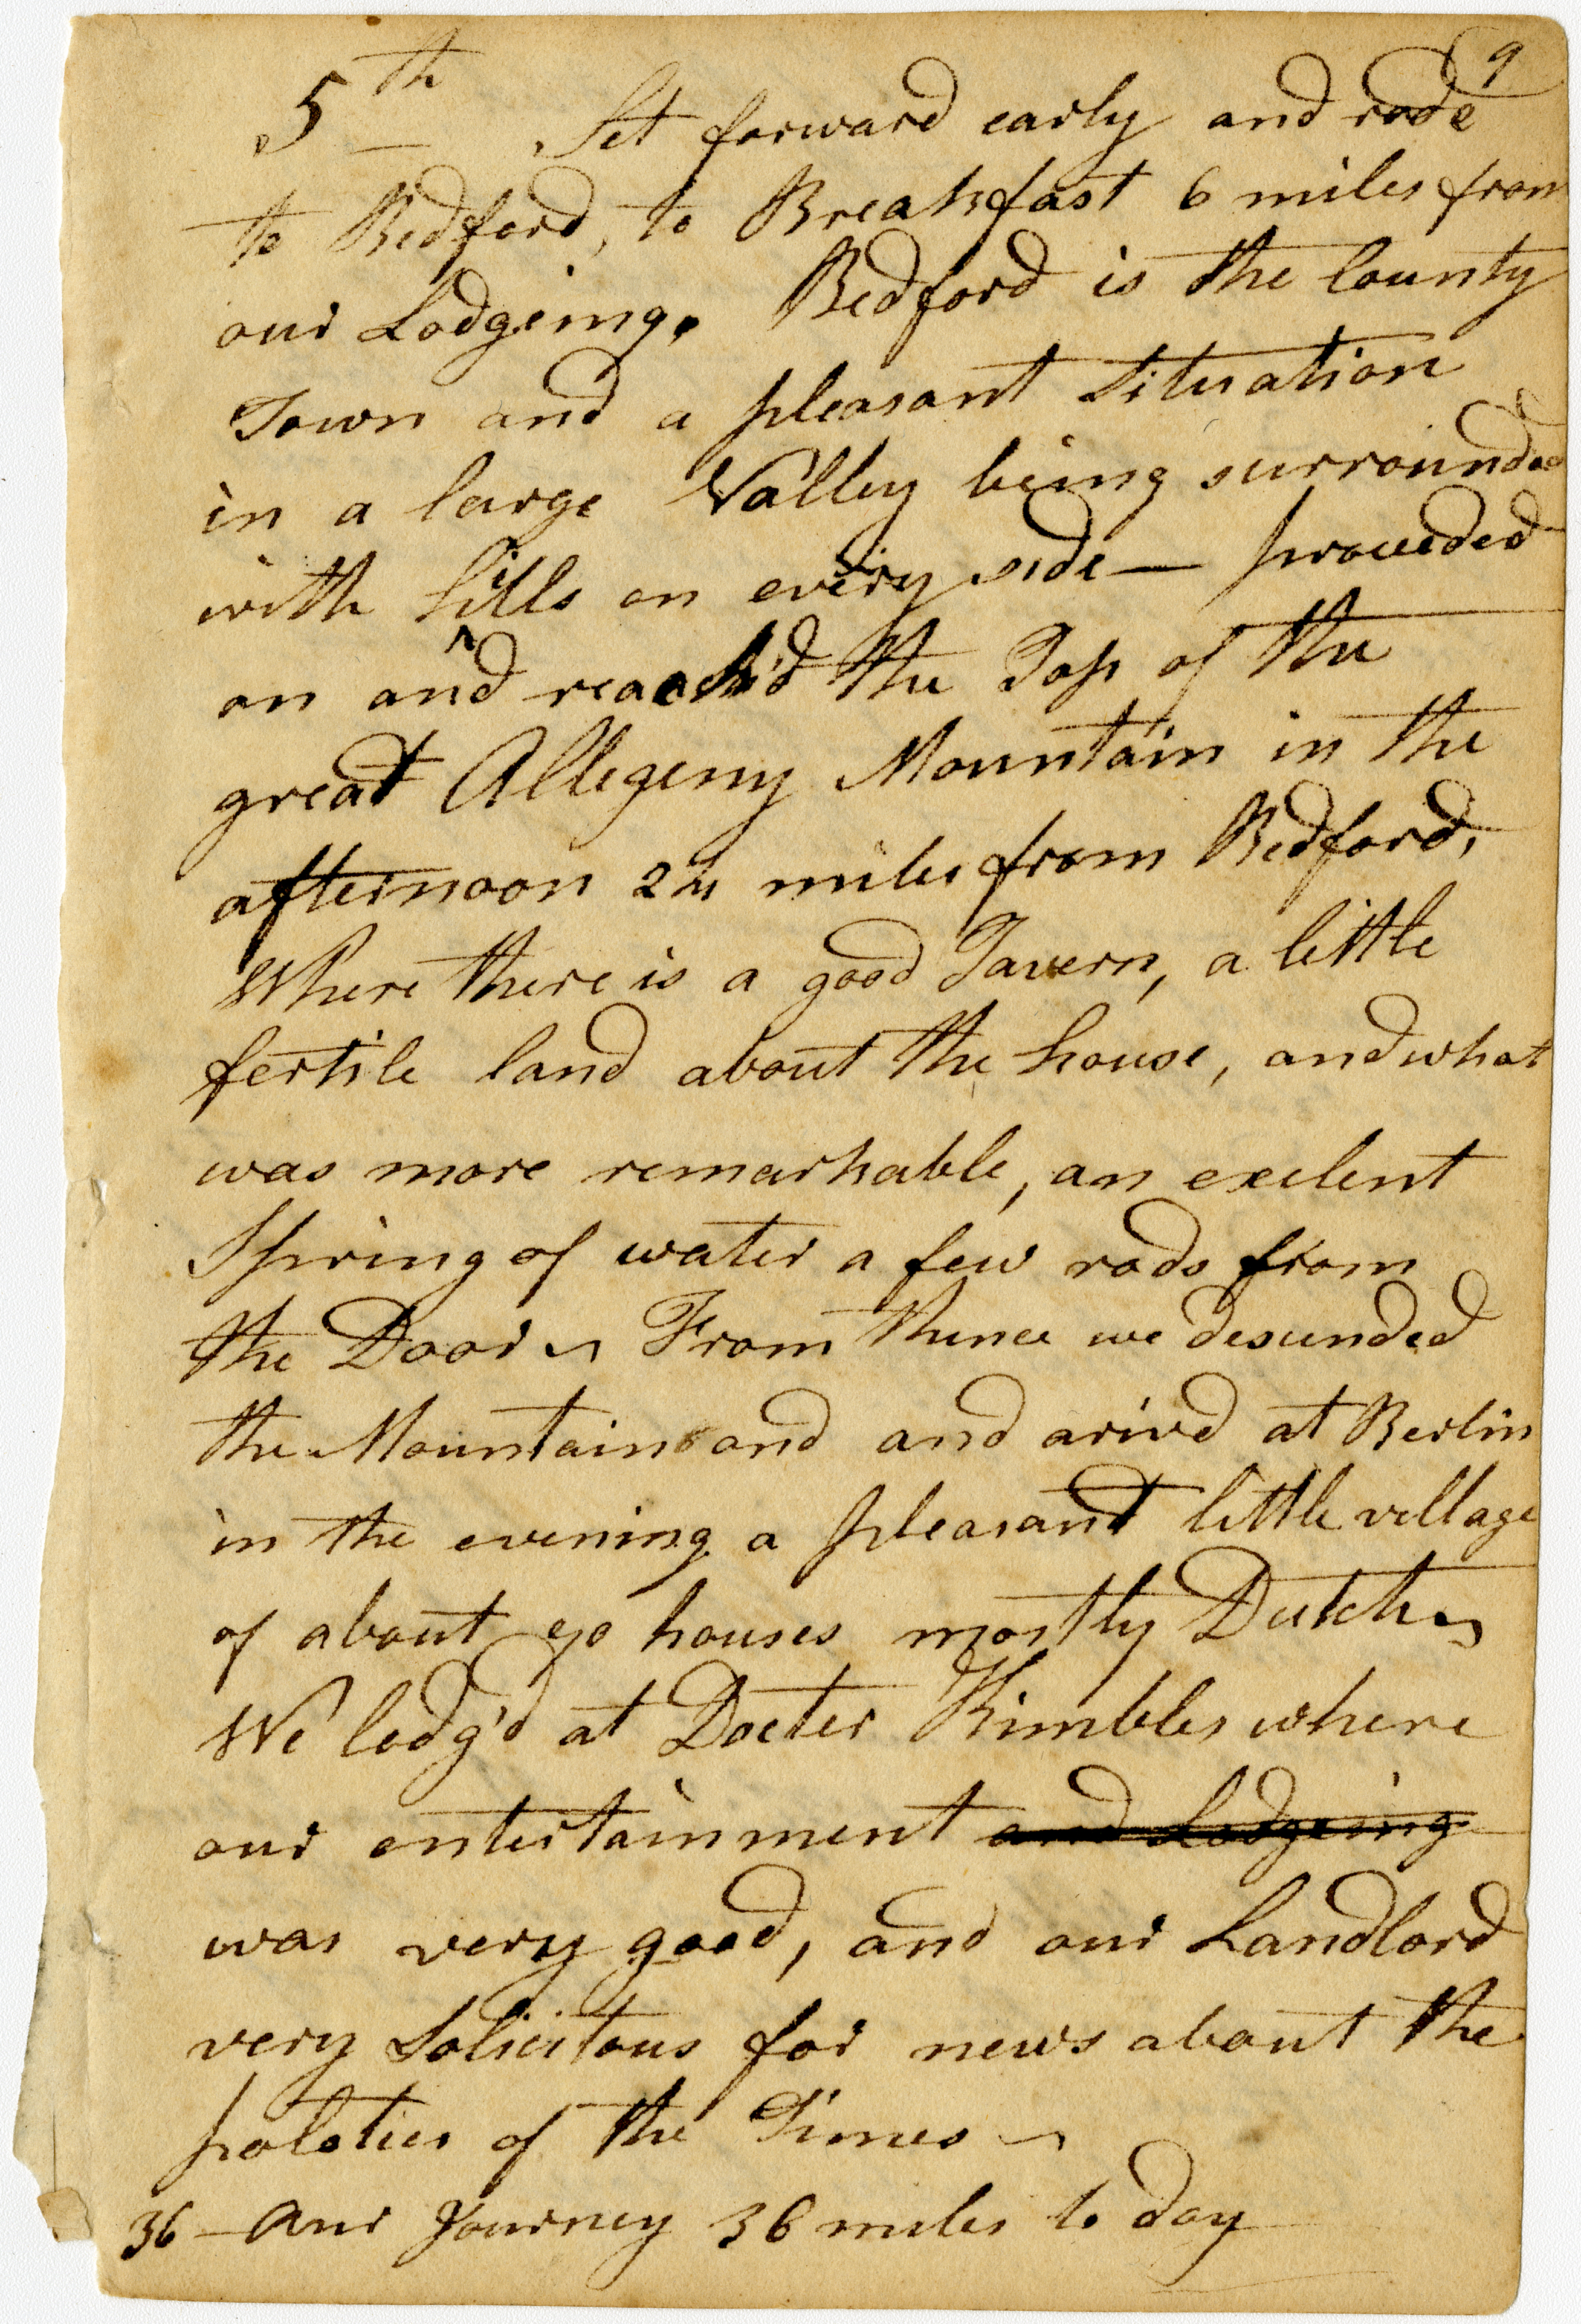 9
5th Set forward early and rode
to Bedford, to Breakfast 6 miles from
our Lodgeing. Bedford is the County
Town and a pleasant Situation
in a large Valley being surrounded
with hills on every side — proceeded
on and reach'd the Top of the
great Allegeny Mountain in the
afternoon 24 miles from Bedford,
Where there is a good Tavern, a little
fertile land about the house, and what
was more remarkable, an exelent
Spring of water a few rods from
the Door ~ From thence we descended
the Mountain and and arived at Berlin
in the evening a pleasant little village
of about houses mostly Dutch ~
We lodg'd at Docter Kimbles where
our entertainment and Lodgeing
was very good, and our Landlord
very Solicitous for news about the
poloties of the Times ~
36 — Our Journey 36 miles to day